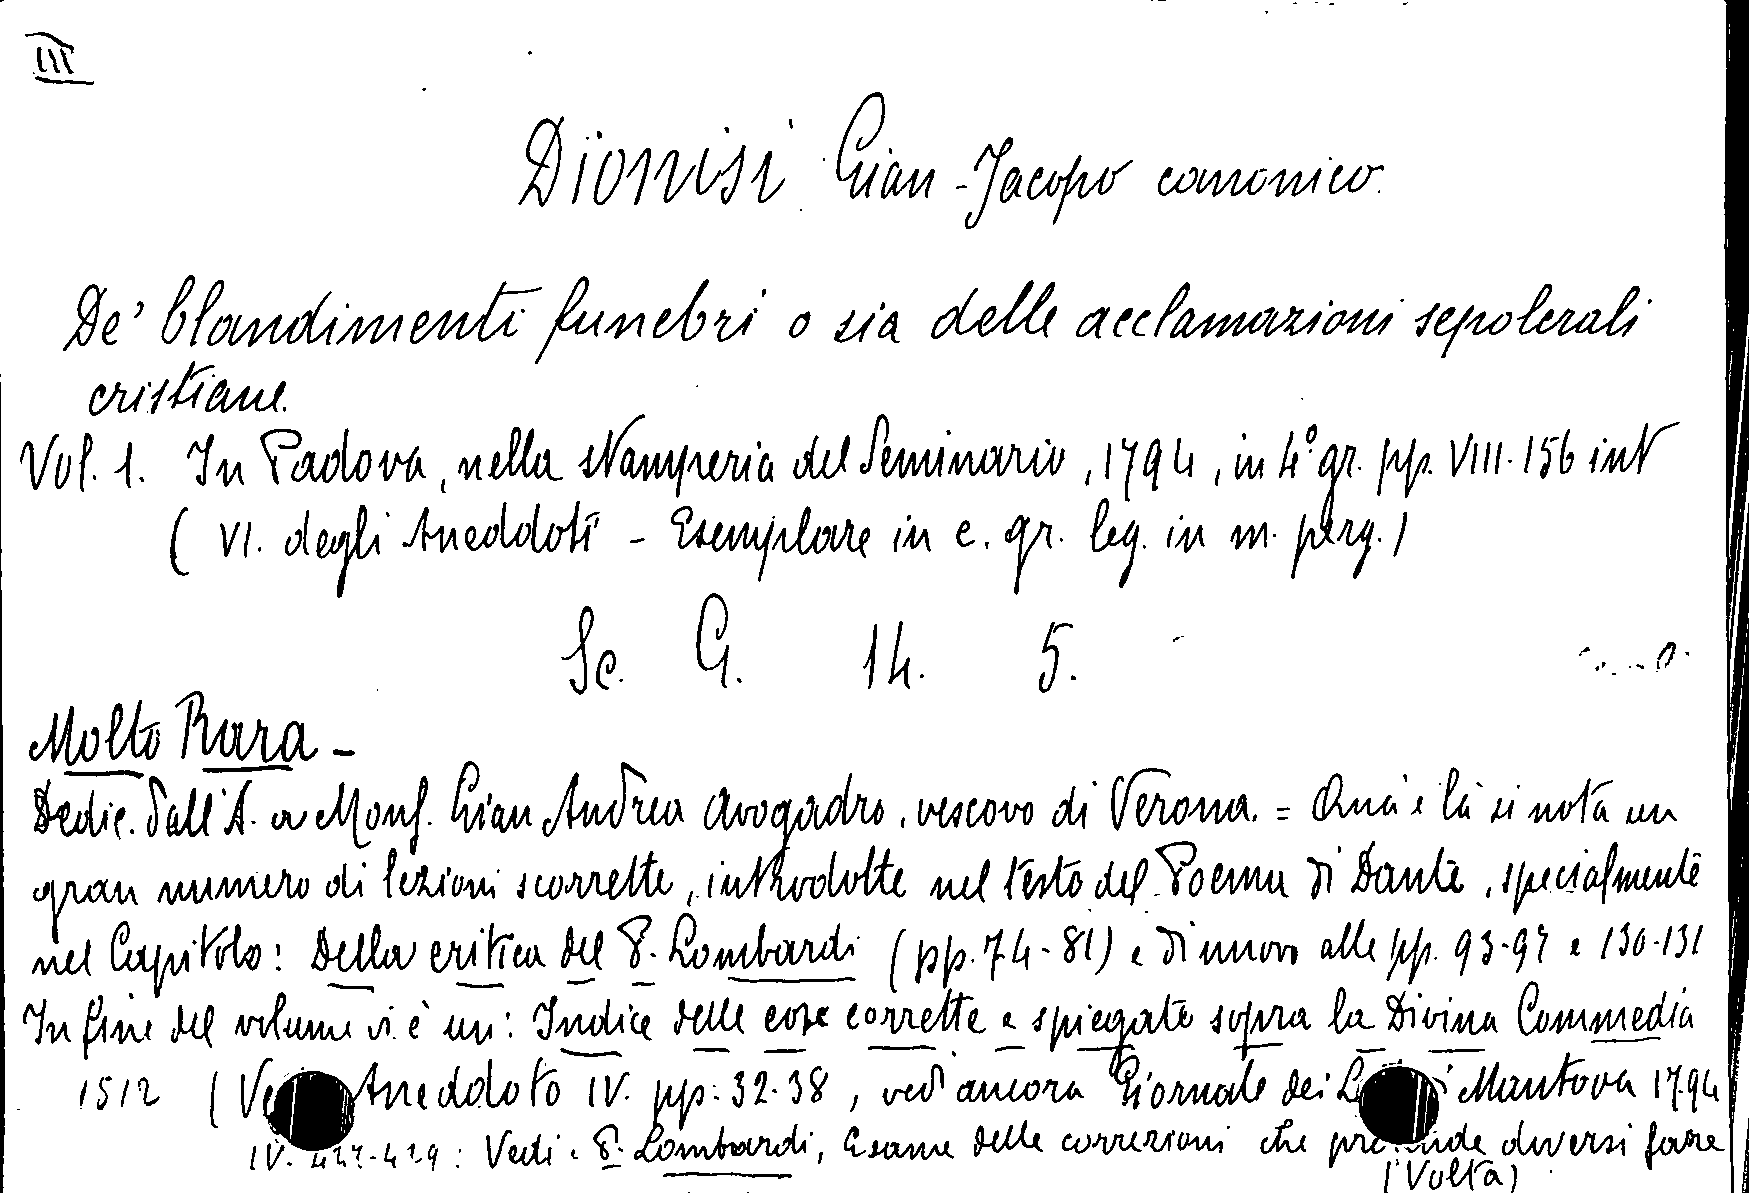 III
Dionisi Gian-Jacopo canonico.
De' blandimenti funebri o sia delle acclamazioni sepolcrali
cristiane.
Vol. 1. In Padova, nella stamperia del Seminario, 1794, in 4° gr. pp. VIII-156 int
( VI. degli Aneddoti - Esemplare in c. gr. leg. in m. perg.)
Sc. G. 14. 5.
Molto Rara -
Dedic. dall'A. a Mons. Gian Andrea Avogadro, vescovo di Verona. = Quà e là si nota un
gran numero di lezioni scorrette, introdotte nel testo del Poema di Dante, specialmente
nel Capitolo: Della critica del P. Lombardi (pp. 74-81) e di nuovo alle pp. 93-97 e 130-131
In fine del volume vi è un: Indice delle cose corrette e spiegate sopra la Divina Commedia
1512 ( Aneddoto IV. pp. 32-38, vedi ancora Giornale dei Mantova 1794
IV. : Vedi: P. Lombardi, Esame delle correzioni che diversi fare
(Volta)